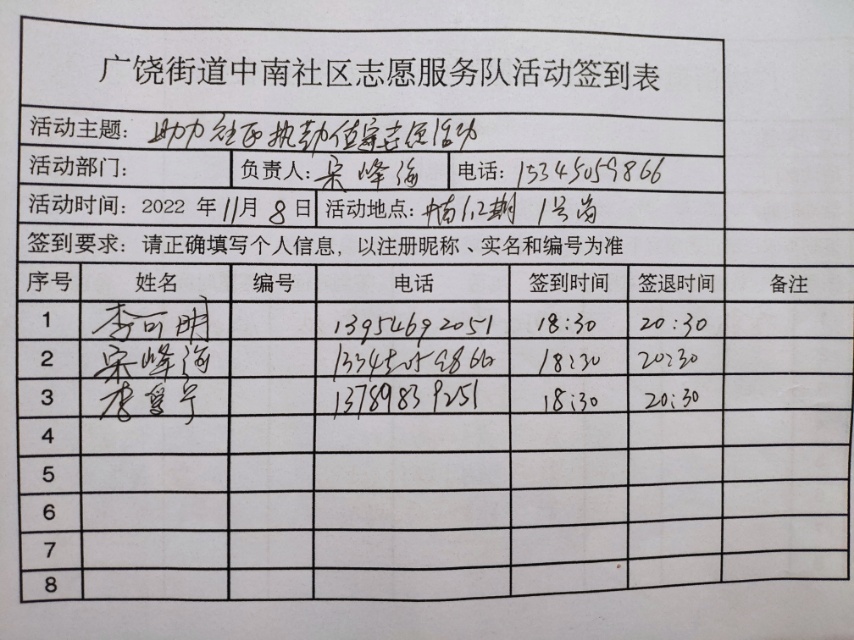 广饶街道中南社区志愿服务队活动签到表
活动主题：助力社区执勤值守志愿活动
活动部门： 负责人：宋峰海 电话：13345059866
活动时间：2022 年 11月 8 日 活动地点：中南1,2期 1号岗
签到要求：请正确填写个人信息，以注册昵称、实名和编号为准
序号 姓名 编号 电话 签到时间 签退时间 备注
1 李可明 13954692051 18:30 20:30
2 宋峰海 13345059866 18:30 20:30
3 李 宁 13789839251 18:30 20:30
4
5
6
7
8